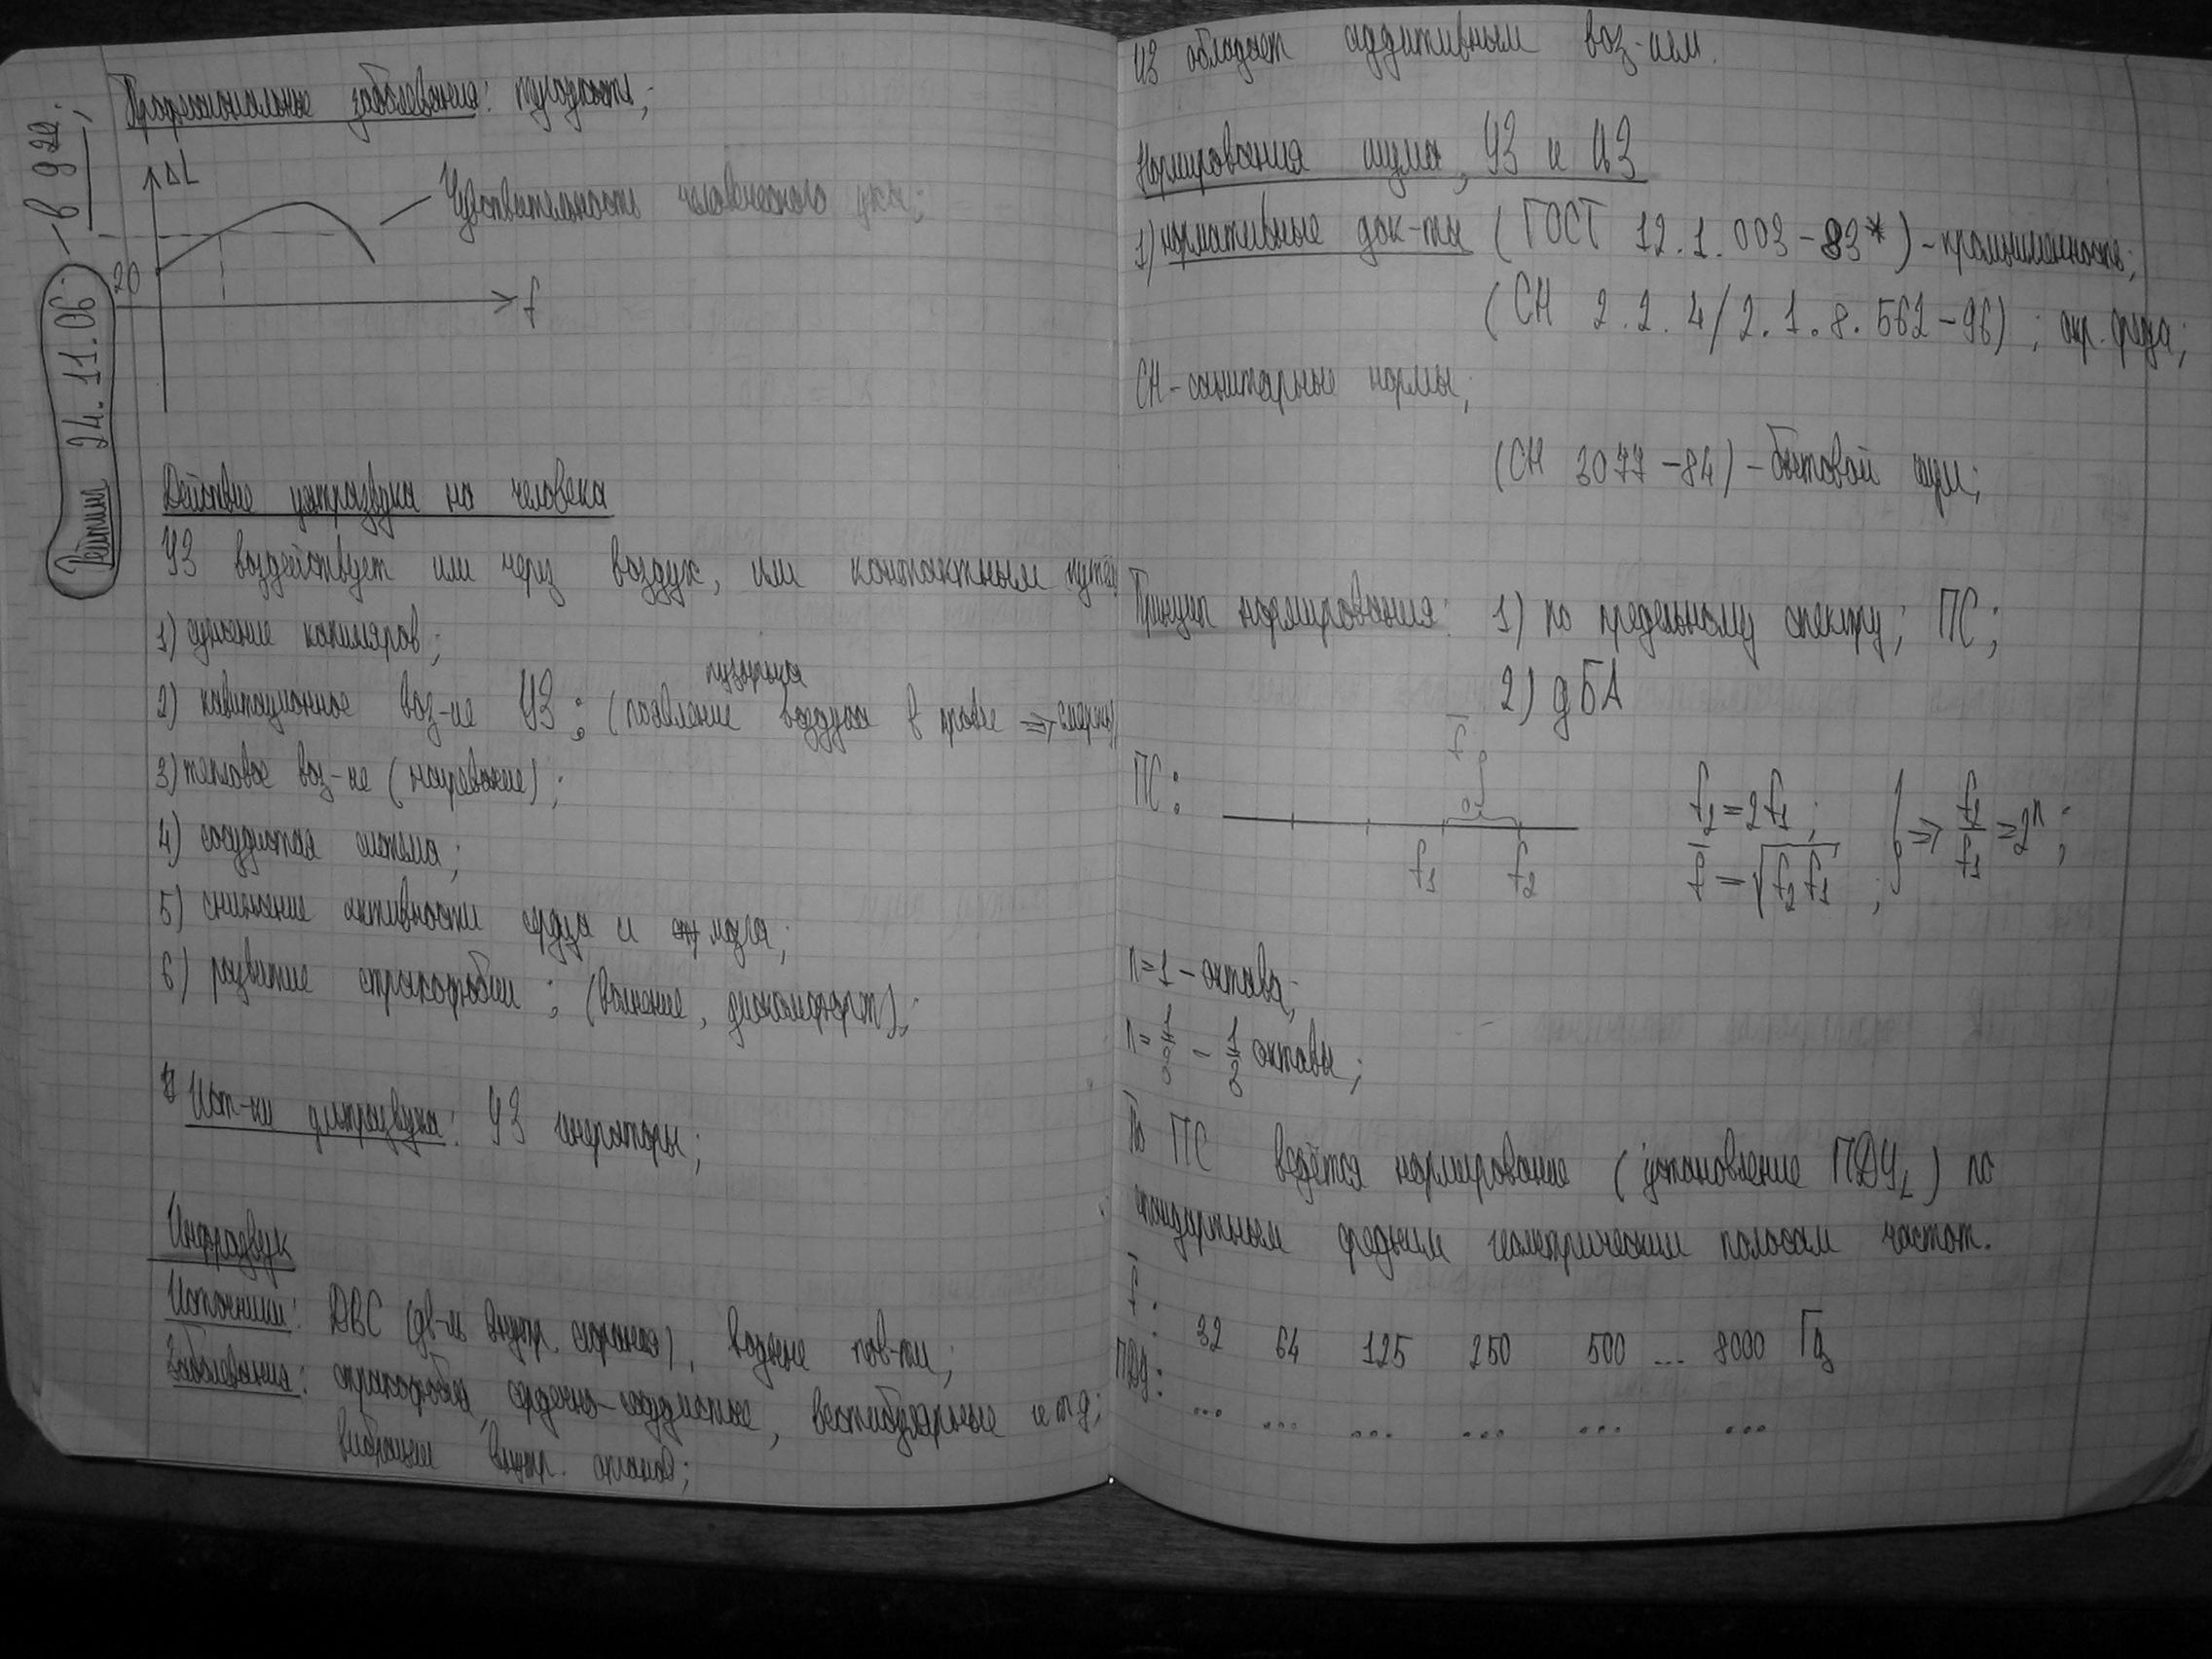 Рейтинг 24.11.06 – в 922;
Профессиональное заболевание: тугоухость;
ΔL
Чувствительность человеческого уха;
20
f
Действие ультразвука на человека
УЗ воздействует или через воздух, или контактным путём
1) сужение капиляров;
пузырьков
2) кавитационное воз-ие УЗ; (появление воздуха в крови => смерть);
3) тепловое воз-ие (нагревание);
4) сосудистая система;
5) снижение активности сердца и мозга;
6) развитие стракофобии; (волнение, дискомфорт);
Ист-ки ультразвука: УЗ генераторы;
Инфразвук
Источники: ДВС (дв-ль внутр. сгорания), водные пов-ти;
Заболевания: стракофобия, сердечно-сосудистые, вестибулярные и т.д;
вибрации внутр. органов;
ИЗ обладает аддитивным воз-ием.
Нормирования шума, УЗ и ИЗ
1) нормативные док-ты (ГОСТ 12.1.003-83*) – промышленность;
(СН 2.2.4/2.1.8.562-96); окр. среда;
СН – санитарные нормы;
(СН 3077-84) – бытовой шум;
Принцип нормирования: 1) по предельному спектру; ПС;
2) дБА
ПС:
f̄
f₁ f₂
f₂=2f₁;
f̄=√f₂f₁; } => f₂/f₁=2ⁿ;
n=1 – октава;
n=1/3 – 1/3 октавы;
По ПС ведётся нормирование (установление ПДУL) по
стандартным средним геометрическим полосам частот.
f̄: 32 64 125 250 500 ... 8000 Гц
ПДУ: ... ... ... ... ... ...